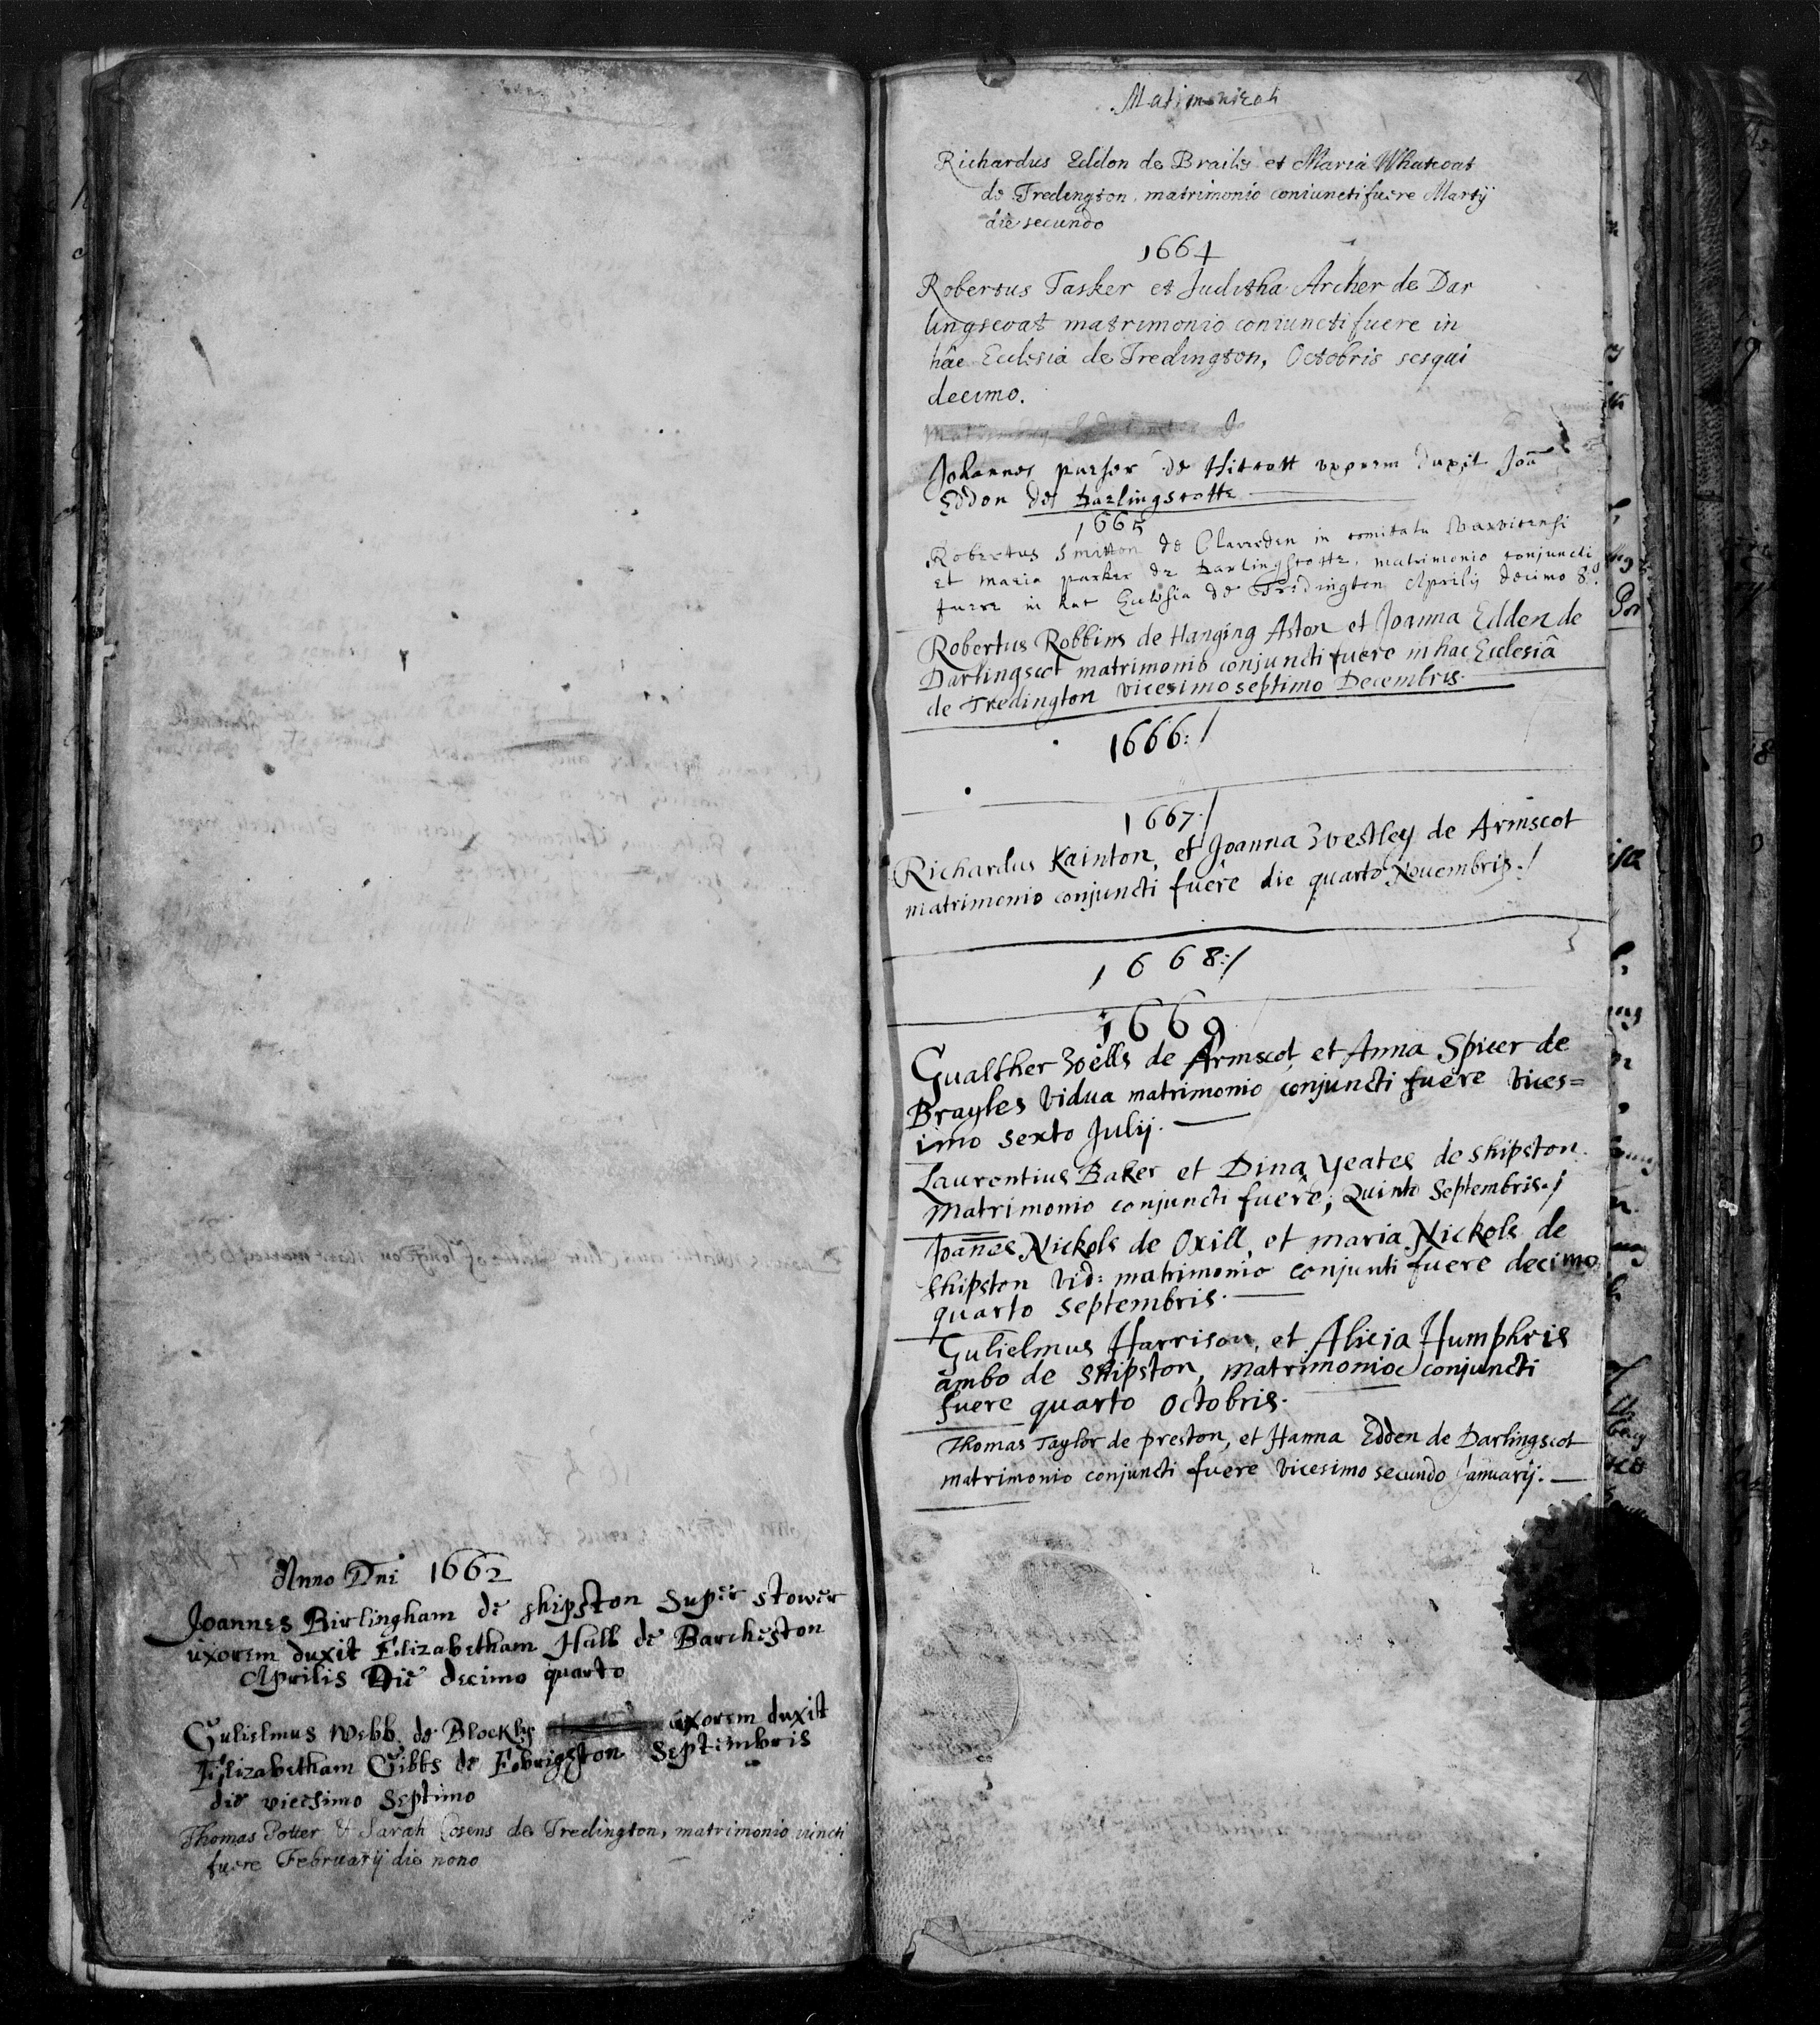 Anno Dni 1662
Joannes Birlingham de shipston super stower
uxorem duxit Elizabetham Hall de Barcheston
Aprilis Die decimo quarto
Gulielmus Webb de Blockly uxorem duxit
Elizabetham Gibbs de Ebrigston Septembris
die vicesimo Septimo
Thomas Potter & Sarah Cosens de Tredington, matrimonio vincti
fuere Februarij die nono
Matimonizati
Richardus Eddon de Brails et Maria Whatcoat
de Tredington, matrimonio coniuncti fuere Martij
die secundo
1664
Robertus Tasker et Juditha Archer de Dar
lingscoat matrimonio coniuncti fuere in
hâc Ecclesia de Tredington, Octobris sesqui
decimo.
Johannes purser de Hitcott uxorem duxit Joā
Eddon de Darlingscotte
1665
Robertus Smitton de Claverden in comitatu Warwicensi
et Maria parker de Darlingscotte, matrimonio conjuncti
fuere in hac Eclesia de Tredington Aprilis decimo 8º.
Robertus Robbins de Hanging Aston et Joanna Edden de
Darlingscot matrimonio conjuncti fuere in hac Ecclesiâ
de Tredington vicesimo septimo Decembris.
1666:/
1667./
Richardus Kainton, et Joanna Westley de Armscot
matrimonio conjuncti fuêre die quarto Novembris./
1668:/
1669
Gualther Wells de Armscot, et Anna Spicer de
Brayles vidua matrimonio conjuncti fuêre vices=
imo sexto Julij.
Laurentius Baker et Dina Yeates de shipston.
Matrimonio conjuncti fuêre; Quinto Septembris./
Joan̄es Nickols de Oxill, et maria Nickols de
shipston vid: matrimonio conjunti fuere decimo
quarto septembris.
Gulielmus Harrison, et Alicia Humphris
ambo de Shipston, matrimonio conjuncti
fuere quarto octobris.
Thomas Taylor de preston, et Hanna Edden de Darlingscot
matrimonio conjuncti fuere vicesimo secundo Januarij.